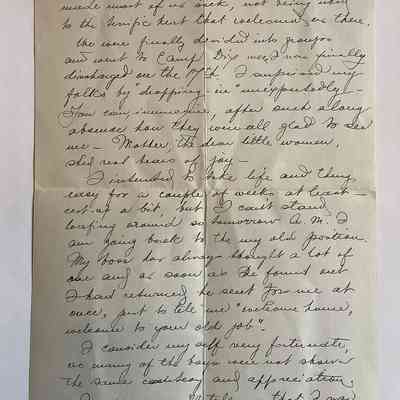 made most of us sick, not being used
to the terrific heat that welcomed us there.
We were finally divided into groups
and went to Camp Dix where I was finally
discharged on the 7th. I surprised my
folks by "dropping-in" unexpectedly—
You can imagine, after such a long
absense how they were all glad to see
me — Mother, the dear little woman,
shed real tears of joy—
I intended to take life and things
easy for a couple of weeks at least—
rest up a bit, but I can't stand
loafing around so tomorrow A.M. I
am going back to the my old position.
My boss has always thought a lot of
me and as soon as he found out
I had returned, he sent for me at
once, just to tell me "welcome home,
welcome to your old job".
I consider my self very fortunate,
as many of the boys were not shown
the same courtesy and appreciation.
that I was